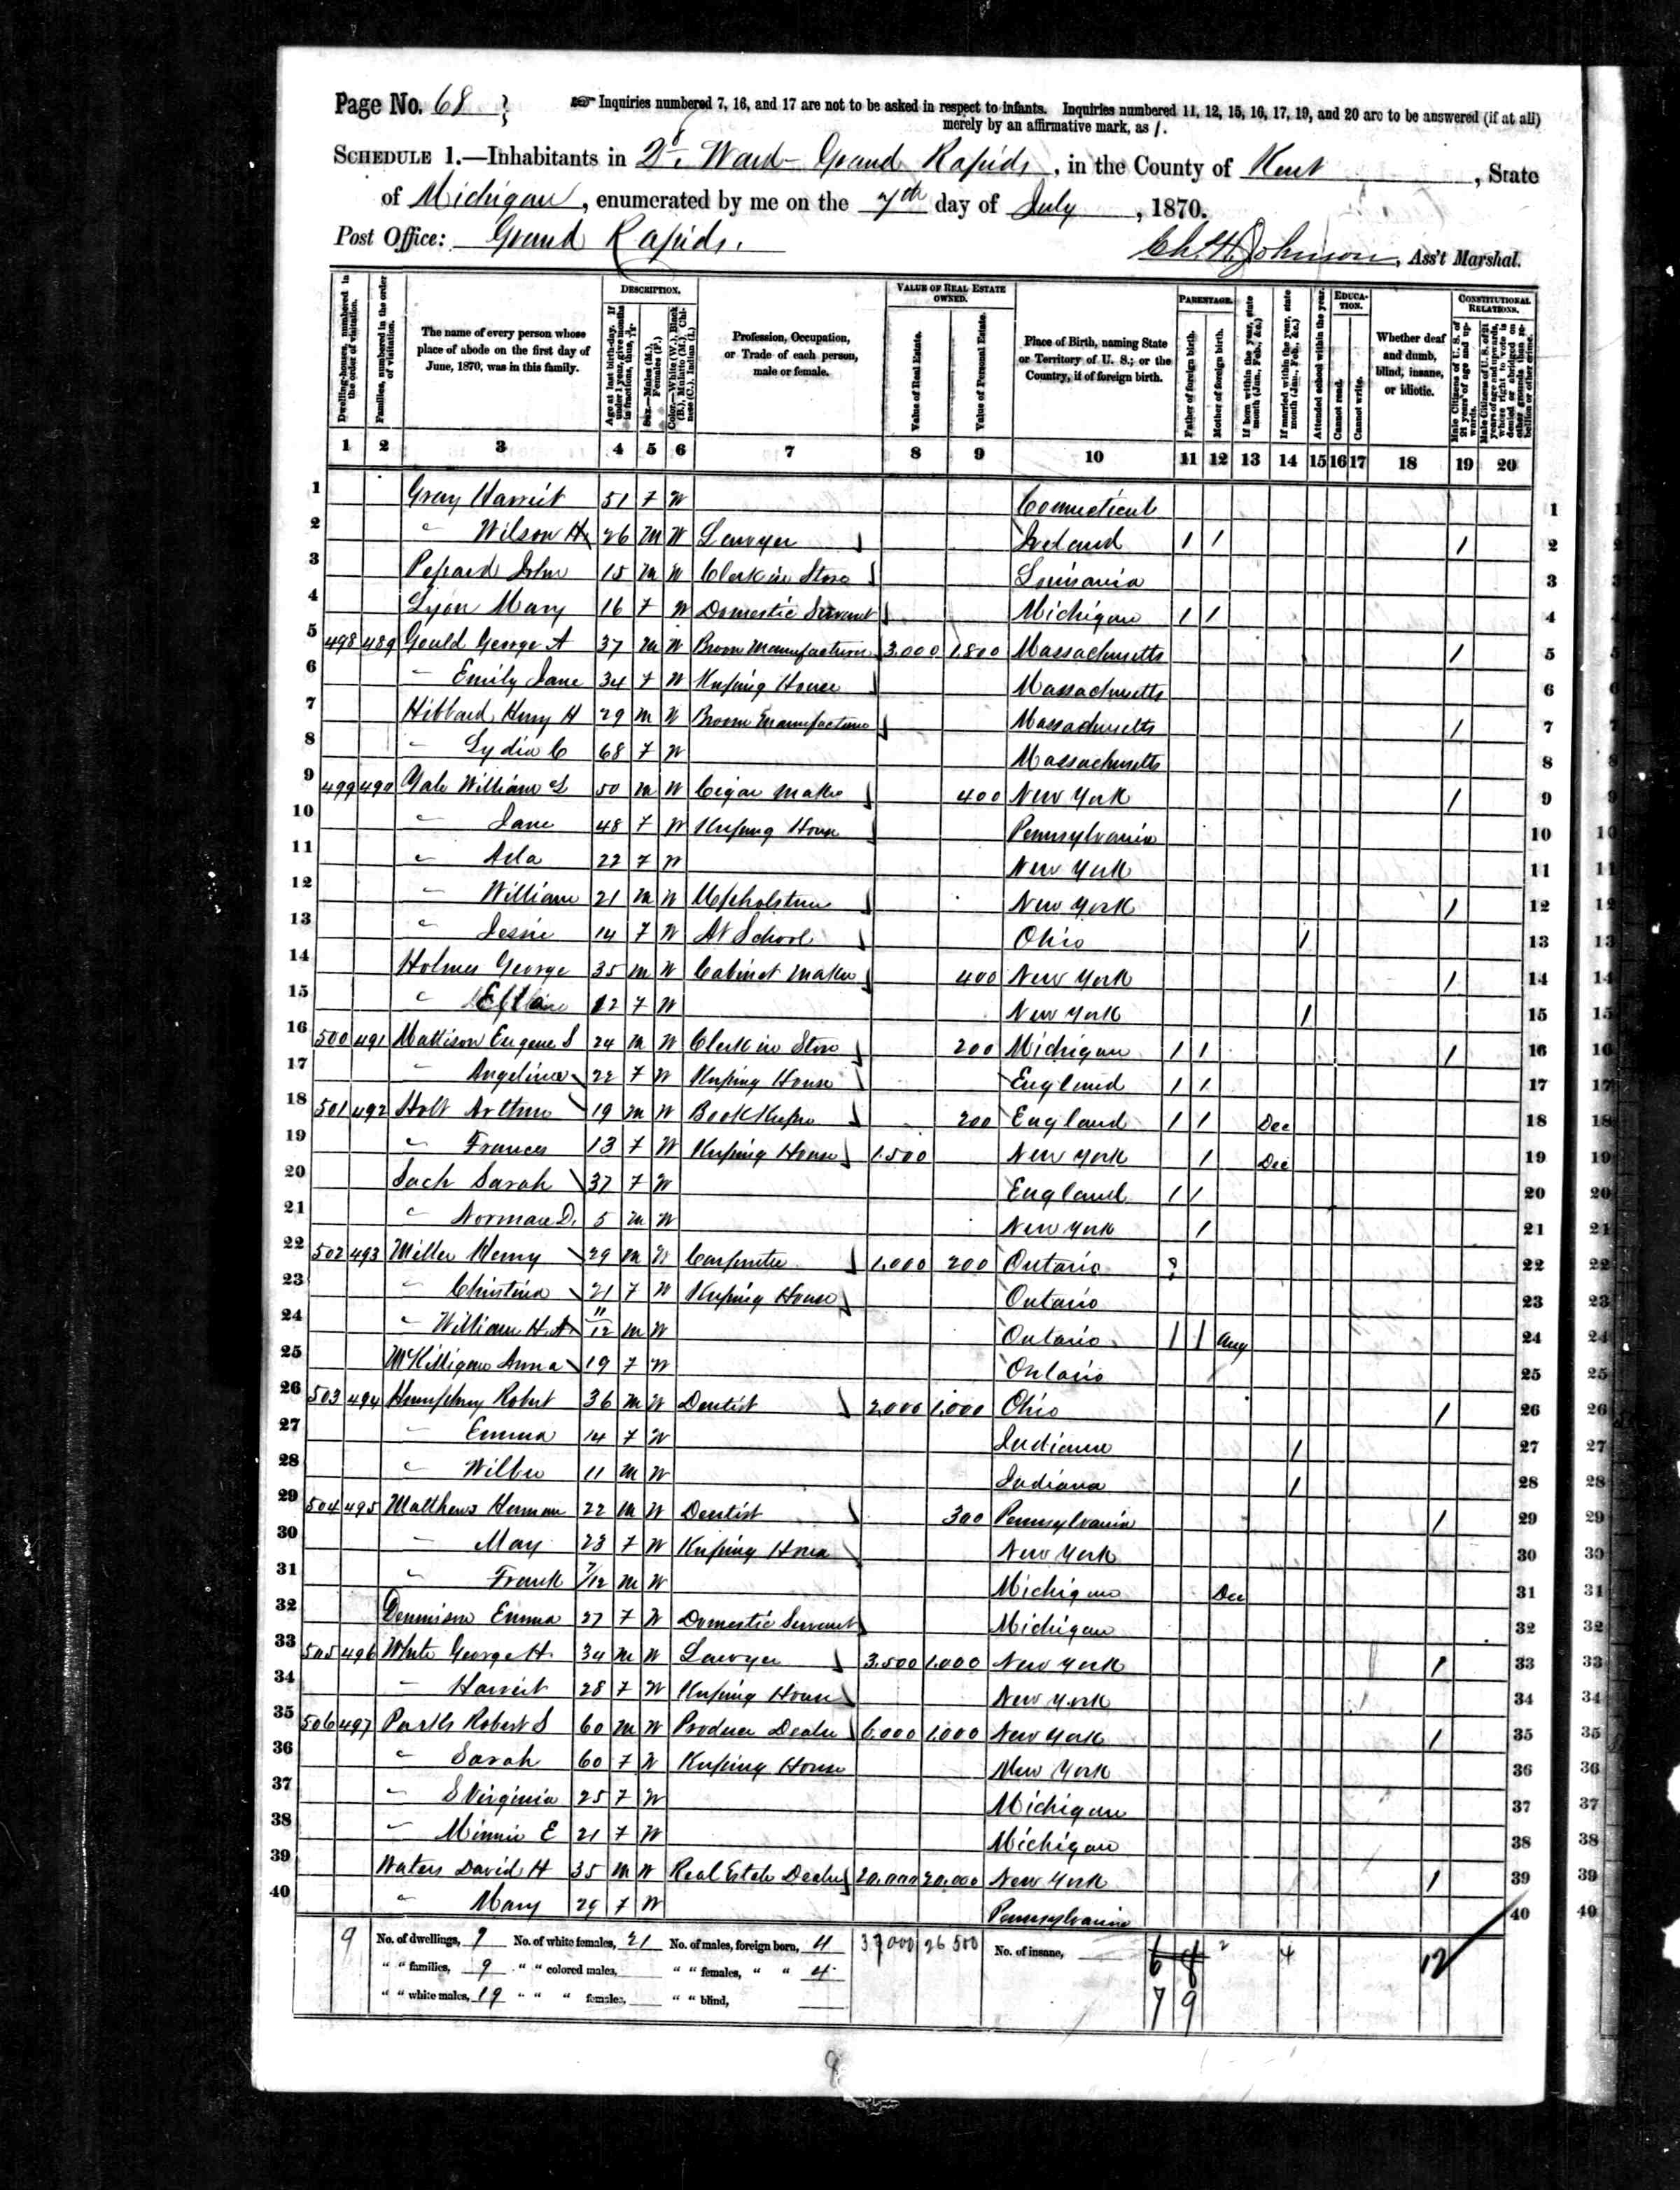 Page No. 68
Inquiries numbered 7, 16, and 17 are not to be asked in respect to infants. Inquiries numbered 11, 12, 15, 16, 17, 19, and 20 are to be answered (if at all)
merely by an affirmative mark, as /.
SCHEDULE 1.—Inhabitants in 2d Ward - Grand Rapids, in the County of Kent, State
of Michigan, enumerated by me on the 7th day of July, 1870.
Post Office: Grand Rapids. Ch. H. Johnson, Ass't Marshal.
DESCRIPTION. VALUE OF REAL ESTATE OWNED. PARENTAGE. EDUCATION. CONSTITUTIONAL RELATIONS.
Dwelling-houses, numbered in the order of visitation.
Families, numbered in the order of visitation.
The name of every person whose place of abode on the first day of June, 1870, was in this family.
Age at last birth-day. If under 1 year, give months in fractions, thus,
Sex.—Males (M.), Females (F.)
Color.—White (W.), Black (B.), Mulatto (M.), Chinese (C.), Indian (I.)
Profession, Occupation, or Trade of each person, male or female.
Value of Real Estate.
Value of Personal Estate.
Place of Birth, naming State or Territory of U. S.; or the Country, if of foreign birth.
Father of foreign birth.
Mother of foreign birth.
If born within the year, state month (Jan., Feb., &c.)
If married within the year, state month (Jan., Feb., &c.)
Attended school within the year.
Cannot read.
Cannot write.
Whether deaf and dumb, blind, insane, or idiotic.
Male Citizens of U. S. of 21 years of age and upwards.
Male Citizens of U. S. of 21 years of age and upwards, where right to vote is denied or abridged on other grounds than rebellion or other crime.
1 2 3 4 5 6 7 8 9 10 11 12 13 14 15 16 17 18 19 20
1 Gray Harriet 51 F W Connecticut 1
2 " Wilson H 26 M W Lawyer Ireland / / / 2
3 John 15 M W Clerk in Store Louisiania 3
4 Lyon Mary 16 F W Domestic Servant Michigan / / 4
5 498 489 Gould George A 37 M W Broom Manufacturer 3,000 1,800 Massachusetts / 5
6 " Emily Jane 34 F W Keeping House Massachusetts 6
7 Hibbard Henry H 29 M W Broom Manufacturer Massachusetts / 7
8 " Lydia C 68 F W Massachusetts 8
9 499 490 Gale William L 50 M W Cigar Maker 400 New York / 9
10 " Jane 48 F W Keeping House Pennsylvania 10
11 " Ada 22 F W New York 11
12 " William 21 M W Upholsterer New York / 12
13 " Jessie 14 F W At School Ohio / 13
14 Holmes George 35 M W Cabinet Maker 400 New York / 14
15 " 12 F W New York / 15
16 500 491 Mattison Eugene S 24 M W Clerk in Store 200 Michigan / / / 16
17 " Angelina 22 F W Keeping House England / / 17
18 501 492 Holt Arthur 19 M W Book Keeper 200 England / / Dec 18
19 " Frances 13 F W Keeping House 1,500 New York / Dec 19
20 Sach Sarah 37 F W England / / 20
21 " Norman D. 5 M W New York / 21
22 502 493 Miller Henry 29 M W Carpenter 1,000 200 Ontario 22
23 " Christina 21 F W Keeping House Ontario 23
24 " William H. A 11/12 M W Ontario / / Aug 24
25 McKilligan Anna 19 F W Ontario 25
26 503 494 Humphrey Robert 36 M W Dentist 2,000 1,000 Ohio / 26
27 " Emma 14 F W Indiana / 27
28 " Wilber 11 M W Indiana / 28
29 504 495 Matthews Herman 22 M W Dentist 300 Pennsylvania / 29
30 " May 23 F W Keeping House New York 30
31 " Frank 7/12 M W Michigan Dec 31
32 Dennison Emma 27 F W Domestic Servant Michigan 32
33 505 496 White George H. 34 M W Lawyer 3,500 1,000 New York / 33
34 " Harriet 28 F W Keeping House New York 34
35 506 497 Parks Robert S 60 M W Produce Dealer 6,000 1,000 New York / 35
36 " Sarah 60 F W Keeping House New York 36
37 " S Virginia 25 F W Michigan 37
38 " Minnie E 21 F W Michigan 38
39 Waters David H 35 M W Real Estate Dealer 20,000 20,000 New York / 39
40 " Mary 29 F W Pennsylvania 40
9 No. of dwellings, 9 No. of white females, 21 No. of males, foreign born, 4 37000 26500 No. of insane, 6 8 2 4 12
" " families, 9 " " colored males, " " females, " " 4
" " white males, 19 " " " females, " " blind, 7 9